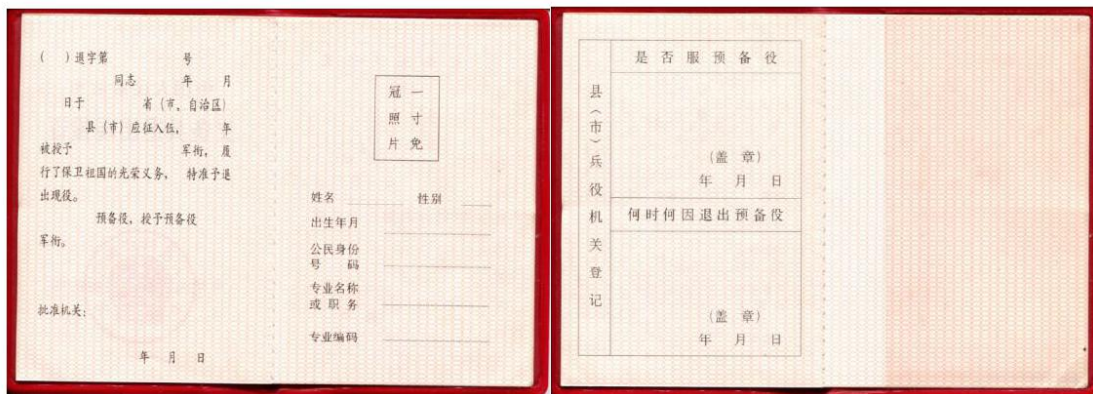 （　）退字第　　　号
同志　　年　月
日于　　省（市、自治区）
县（市）应征入伍，　　年
被授予　　　　军衔，履
行了保卫祖国的光荣义务，　特准予退
出现役。
预备役，授予预备役
军衔。
批准机关：
年　月　日
一寸免冠照片
姓名　　性别
出生年月
公民身份
号　码
专业名称
或职务
专业编码
县（市）兵役机关登记
是否服预备役
（盖　章）
年　月　日
何时何因退出预备役
（盖　章）
年　月　日